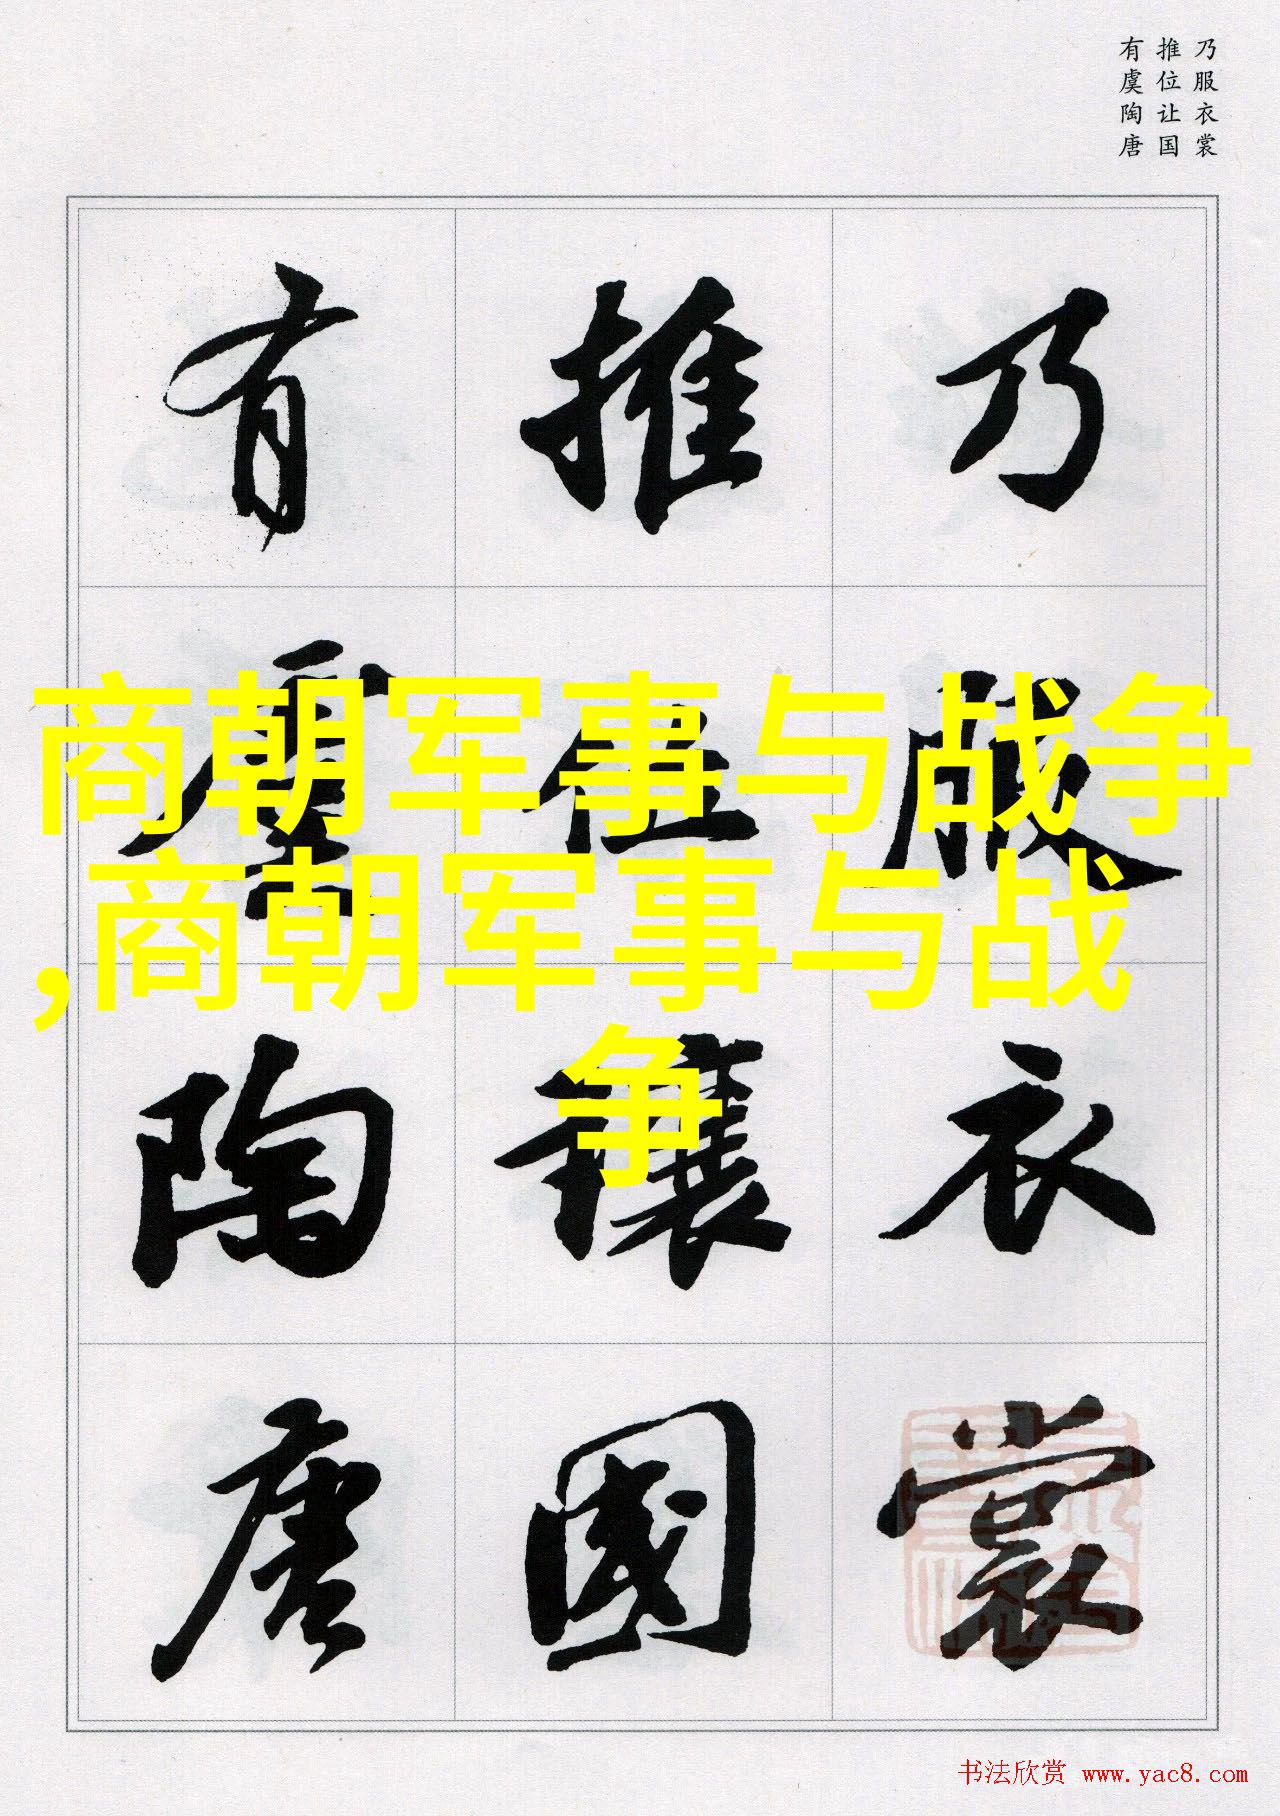 乃服衣裳
推位让国
有虞陶唐
乃服衣裳
推位讓國
有虞陶唐
商朝军事与战争
,商朝军事与战
争
书法欣赏 www.yac8.com